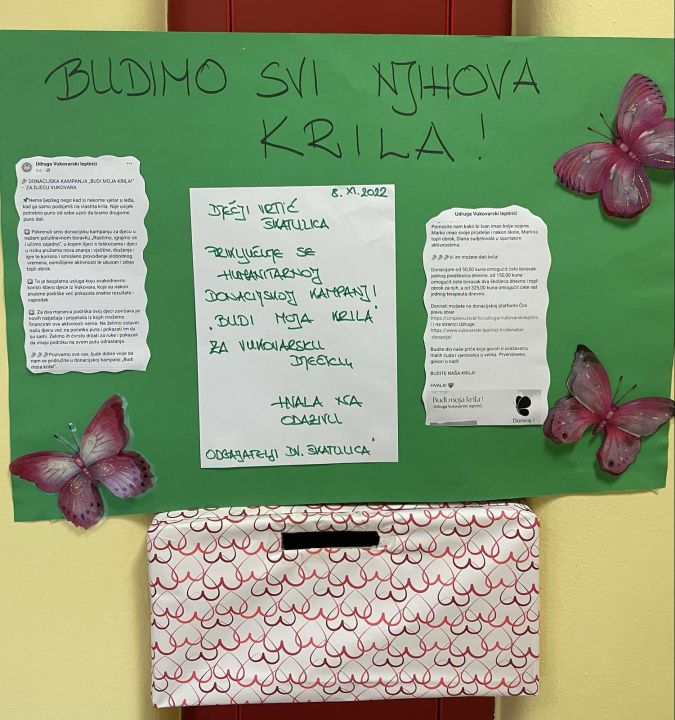 BUDIMO SVI NJIHOVA
KRILA!
Udruga Vukovarski leptirići
DONACIJSKA KAMPANJA „BUDI MOJA KRILA!"
– ZA DJECU VUKOVARA
Nema ljepšeg nego kad si nekome vjetar u leđa,
kad ga samo podsjetiš na vlastita krila. Nije uvijek
potrebno puno od sebe uzeti da bismo drugome
puno dali.
Pokrenuli smo donacijsku kampanju za djecu u
našem poludnevnom boravku „Rastimo, igrajmo se
i učimo zajedno", u kojem djeci s teškoćama i djeci
u riziku pružamo nova znanja i vještine, druženje i
igre te korisno i smisleno provođenje slobodnog
vremena, osmišljene aktivnosti te ukusan i zdrav
topli obrok.
To je besplatna usluga koju svakodnevno
koristi 40ero djece iz Vukovara, koja su nakon
pružene podrške već pokazala znatne rezultate i
napredak.
Za dva mjeseca podrška ovoj djeci završava jer
novih natječaja i projekata iz kojih možemo
financirati ove aktivnosti nema. Ne želimo ostaviti
našu djecu već na početku puta i pokazati im da
su sami. Želimo ih čvrsto držati za ruke i pokazati
da imaju podršku na svom putu odrastanja.
Pozivamo sve vas, ljude dobre volje da
nam se pridružite u donacijskoj kampanji „Budi
moja krila!".
8. XI. 2022
DJEČJI VRTIĆ
ŠKATULICA
PRIKLJUČUJE SE
HUMANITARNOJ
DONACIJSKOJ KAMPANJI
"BUDI MOJA KRILA"
ZA VUKOVARSKU
DJEČICU
HVALA NA
ODAZIVU
ODGAJATELJI DV. "ŠKATULICA"
Udruga Vukovarski leptirići
Pomozite nam kako bi Ivan imao bolje ocjene,
Marko imao svoje prijatelje i nakon škole, Martina
topli obrok, Diana sudjelovala u sportskim
aktivnostima.
Vi im možete dati krila!
Donacijom od 50,00 kuna omogućit ćete boravak
jednog predškolca dnevno, od 150,00 kuna
omogućit ćete boravak dva školarca dnevno i topli
obrok za njih, a od 325,00 kuna omogućit ćete rad
jednog terapeuta dnevno.
Donirati možete na donacijskoj platformi Čini
pravu stvar
i na stranici Udruge.
Budite dio naše priče koja govori o uvažavanju
malih čuda i vjerovanju u velika. Prvenstveno
govori o nadi!
BUDITE NAŠA KRILA!
HVALA!
Budi moja krila!
Udruga Vukovarski leptirići
Doniraj!